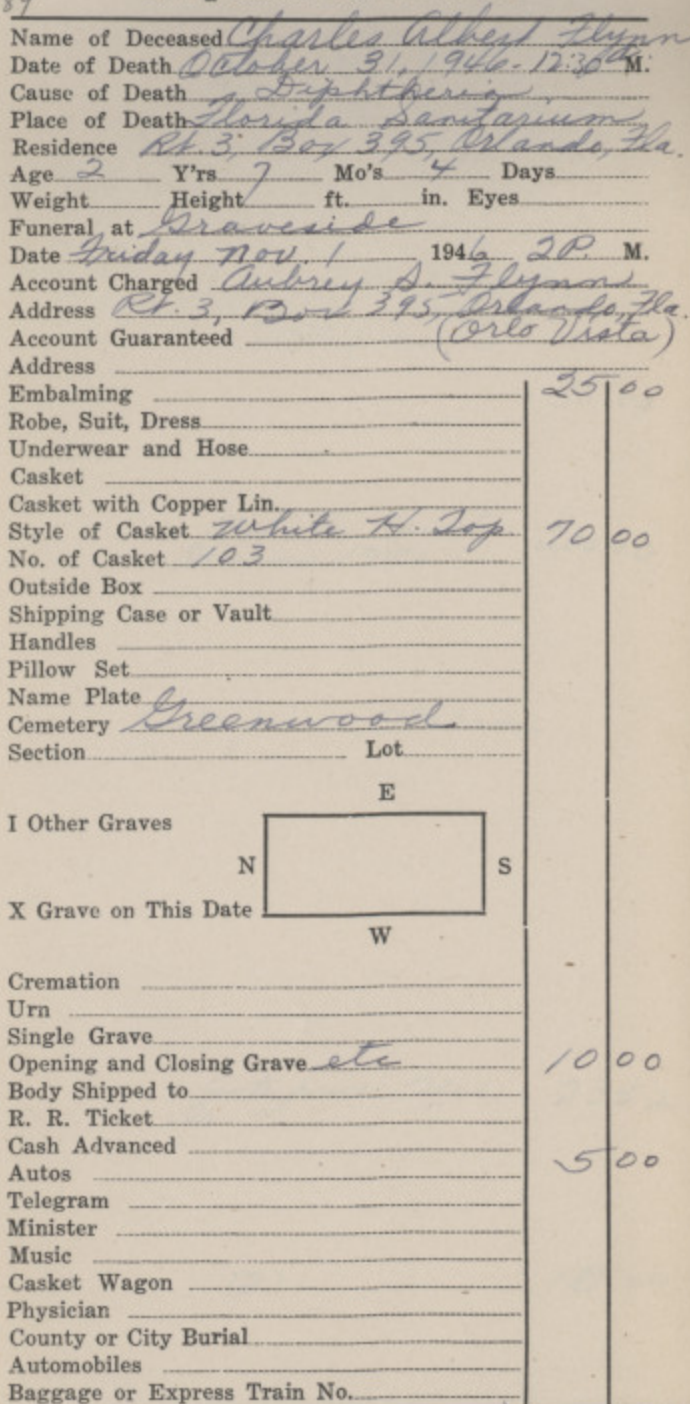 87
Name of Deceased Charles Albert Flynn
Date of Death October 31, 1946 - 12:30 a M.
Cause of Death Diphtheria
Place of Death Florida Sanitarium
Residence Rt. 3, Box 395, Orlando, Fla.
Age 2 Y'rs 7 Mo's 4 Days
Weight Height ft. in. Eyes
Funeral at Graveside
Date Friday Nov. 1 1946 2 P. M.
Account Charged Aubrey S. Flynn
Address Rt. 3, Box 395, Orlando, Fla.
Account Guaranteed (Orlo Vista)
Address
Embalming 25 00
Robe, Suit, Dress
Underwear and Hose
Casket
Casket with Copper Lin.
Style of Casket White H. Top 70 00
No. of Casket 103
Outside Box
Shipping Case or Vault
Handles
Pillow Set
Name Plate
Cemetery Greenwood
Section Lot
E
I Other Graves
N S
X Grave on This Date
W
Cremation
Urn
Single Grave
Opening and Closing Grave etc 10 00
Body Shipped to
R. R. Ticket
Cash Advanced
Autos 5 00
Telegram
Minister
Music
Casket Wagon
Physician
County or City Burial
Automobiles
Baggage or Express Train No.